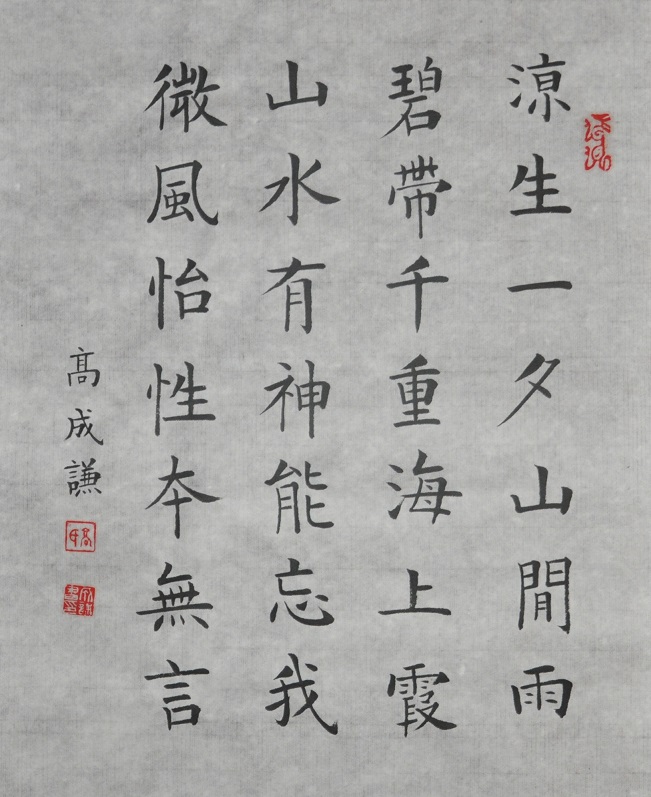 涼生一夕山閒雨
碧帶千重海上霞
山水有神能忘我
微風怡性本無言
高成謙